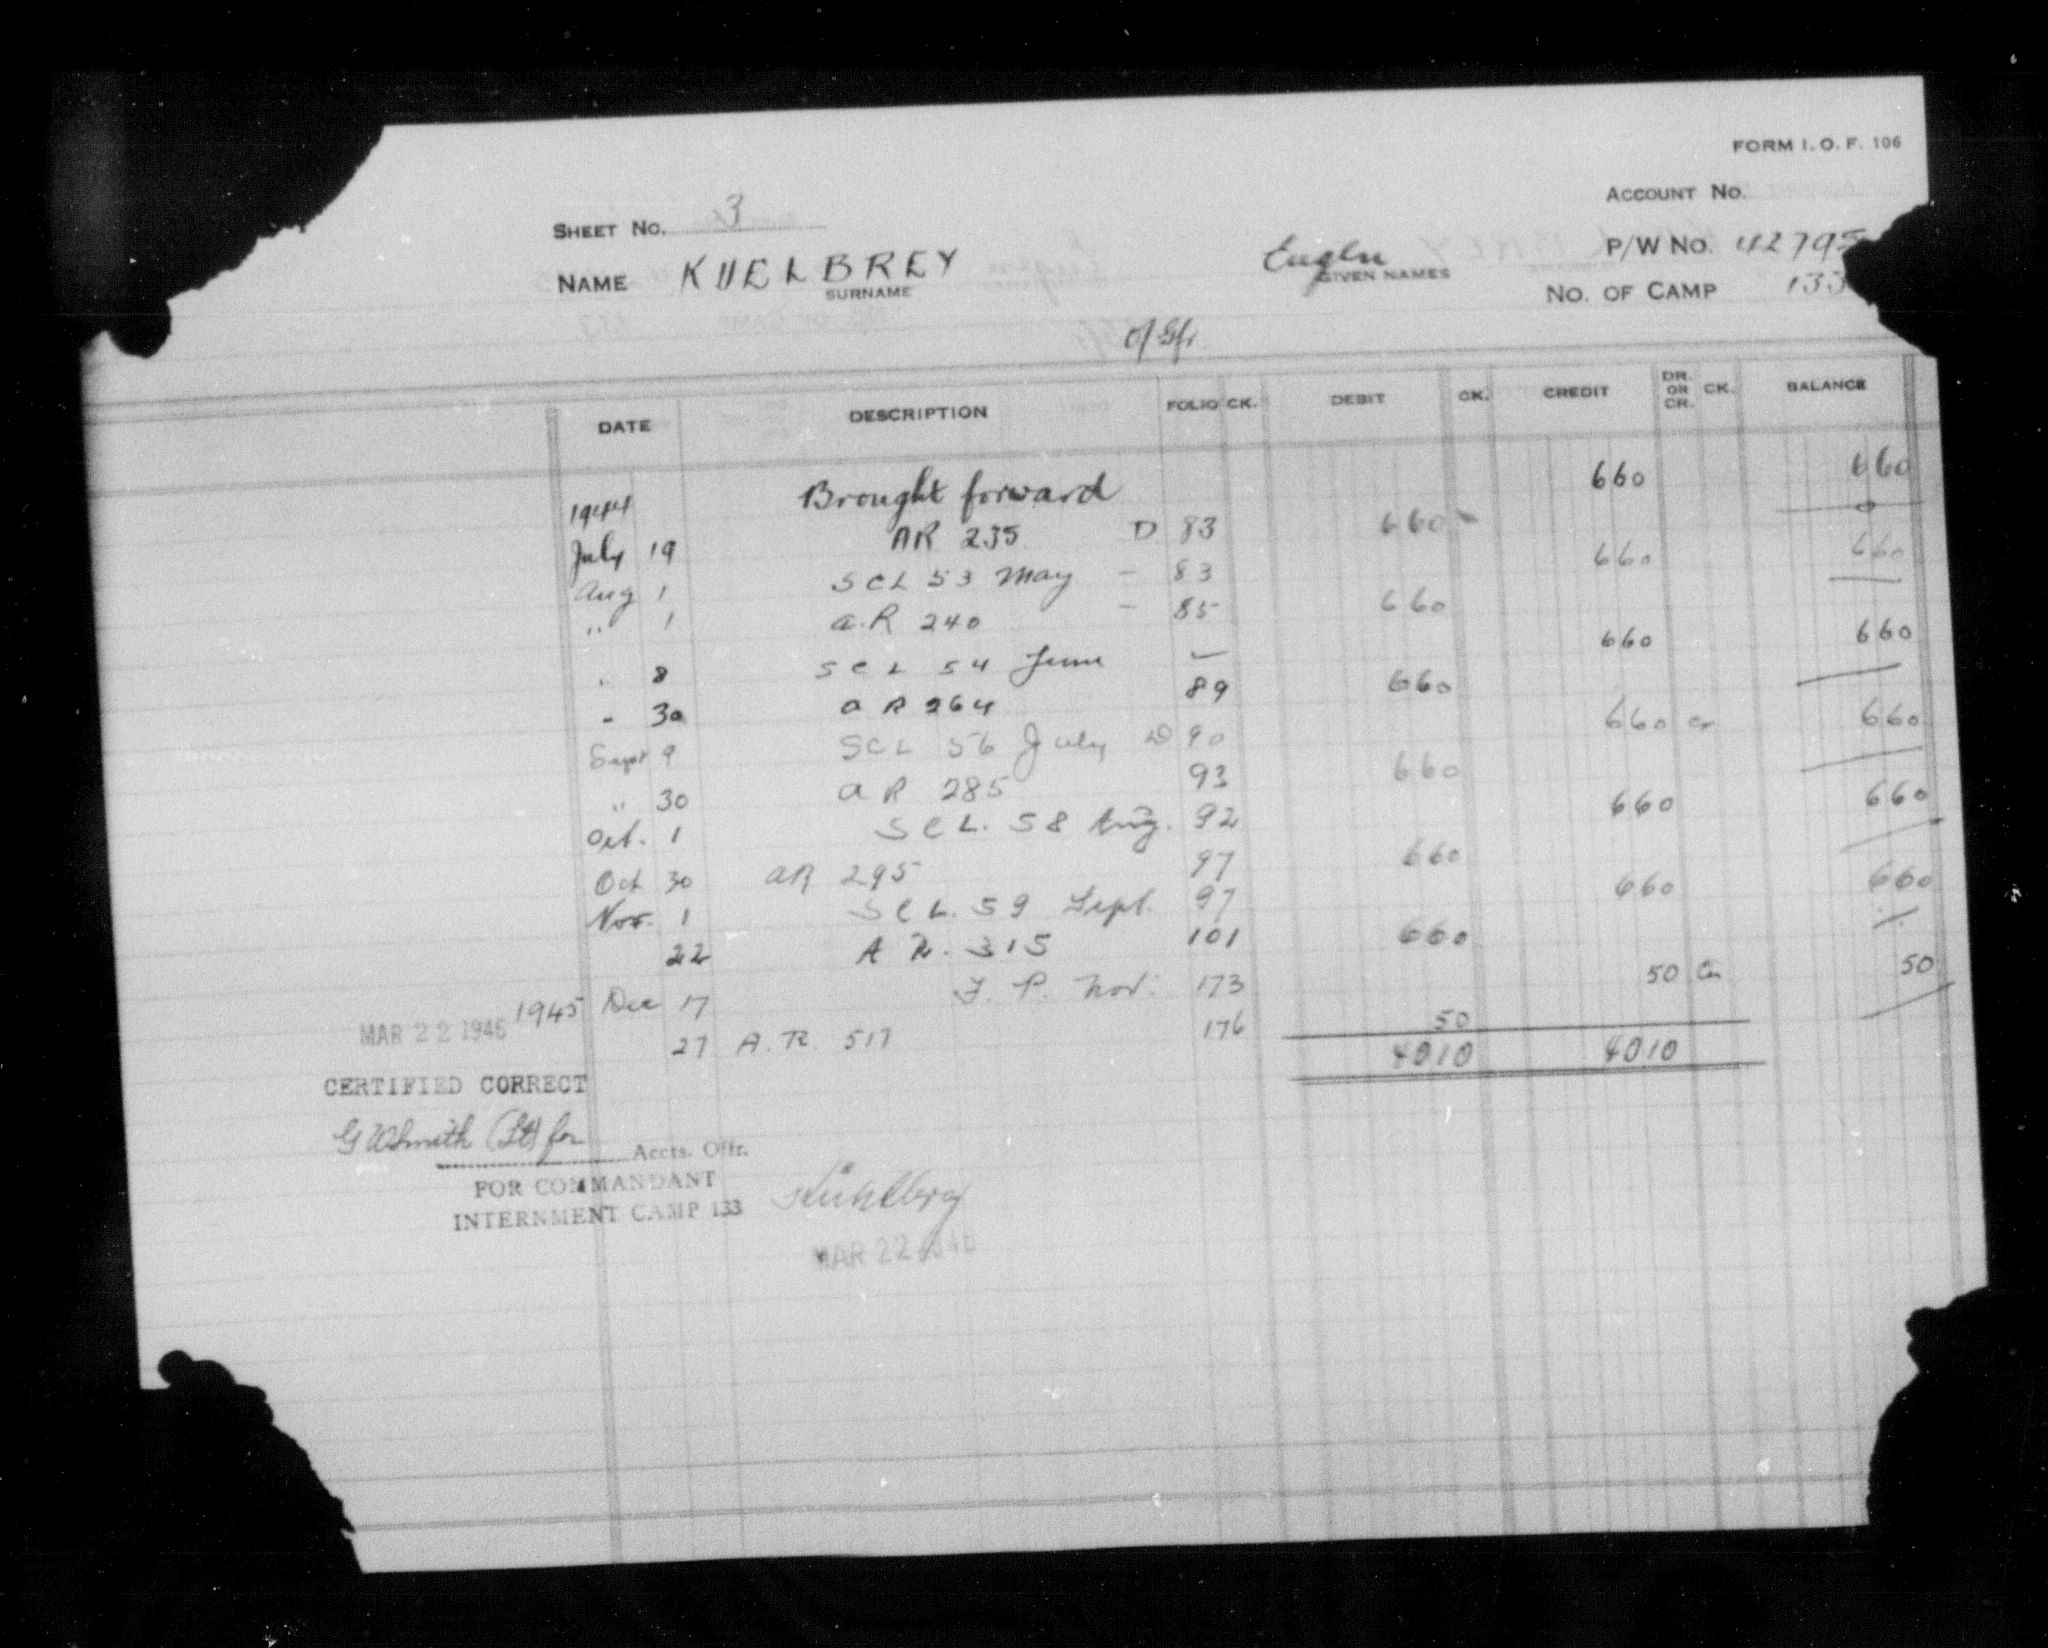 FORM I. O. F. 106
ACCOUNT No.
SHEET No. 3
P/W No. 112795
NAME KUELBREY Eugen
SURNAME GIVEN NAMES
No. OF CAMP 133
O/Gfr.
DATE DESCRIPTION FOLIO CK. DEBIT CK. CREDIT DR. OR CR. CK. BALANCE
1944 Brought forward 660 660
July 19 AR 235 D 83 660 0
Aug 1 SCL 53 May - 83 660 660
" 1 a.R 240 - 85 660
" 8 SCL 54 June 660 660
" 30 a R 264 89 660
Sept 9 SCL 56 July D 90 660 Cr 660
" 30 a R 285 93 660
Oct. 1 SCL. 58 Aug. 92 660 660
Oct 30 AR 295 97 660
Nov. 1 SCL. 59 Sept. 97 660 660
22 A R. 315 101 660
1945 Dec 17 F. P. Nov. 173 50 Cr 50
27 A. R. 517 176 50
4010 4010
MAR 22 1946
CERTIFIED CORRECT
G W Smith (Lt) for Accts. Offr.
FOR COMMANDANT
INTERNMENT CAMP 133
MAR 22 1946